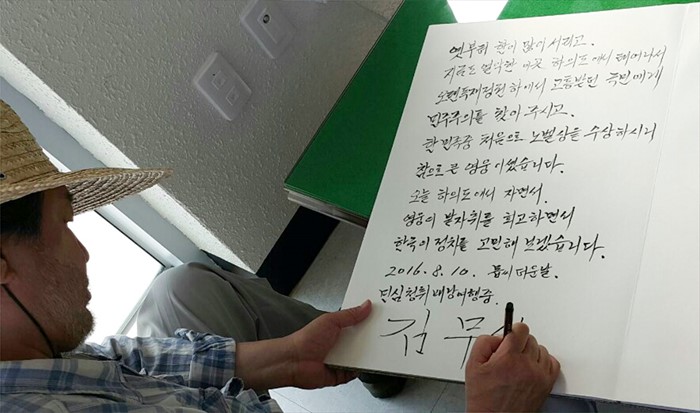 옛부터 한이 많이 서리고.
지금도 열악한 이곳 하의도에서 태어나서
오랜독재정권하에서 고통받던 국민에게
민주주의를 찾아 주시고.
한민족중 처음으로 노벨상을 수상하시어
참으로 큰 영웅이셨습니다.
오늘 하의도에서 자면서.
영웅의 발자취를 회고하면서
한국의 정치를 고민해 보겠습니다.
2016. 8. 10. 몹시 더운날.
민심청취 배낭여행중.
김 무